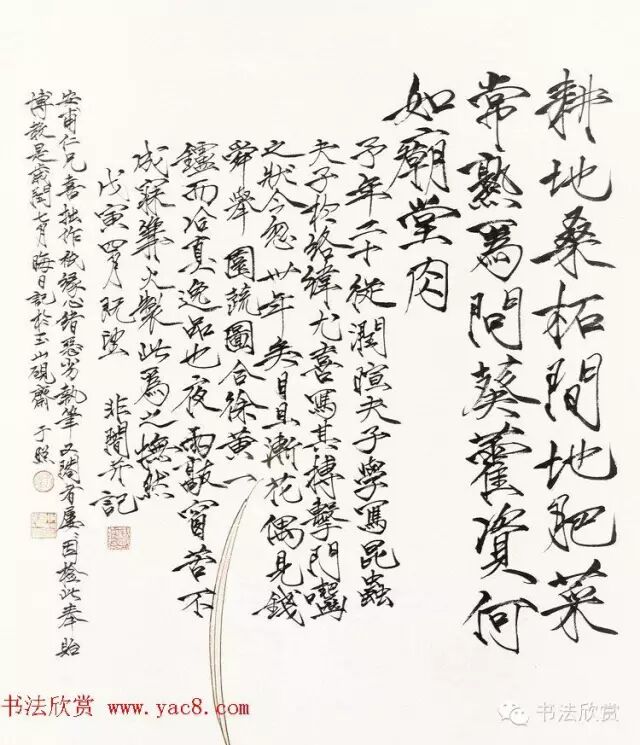 耕地桑柘間地肥菜
常熟為問葵藿資何
如廟堂肉
予年二十從潤暄夫子學寫昆蟲
夫子於絡緯尤喜寫其搏擊鬥囓
之狀今忽卅年矣目且漸花偶見錢
舜舉園蔬圖合徐黃一
鑪而冶真逸品也夜雨敲窗苦不
成寐篝火製此為之憮然
戊寅四月既望 非闇并記
安甫仁兄喜拙作祇緣心緒惡劣執筆又閣有屢因檢此奉貽
博教是歲閏七月晦日記於玉山硯齋 于照
书法欣赏 www.yac8.com
书法欣赏